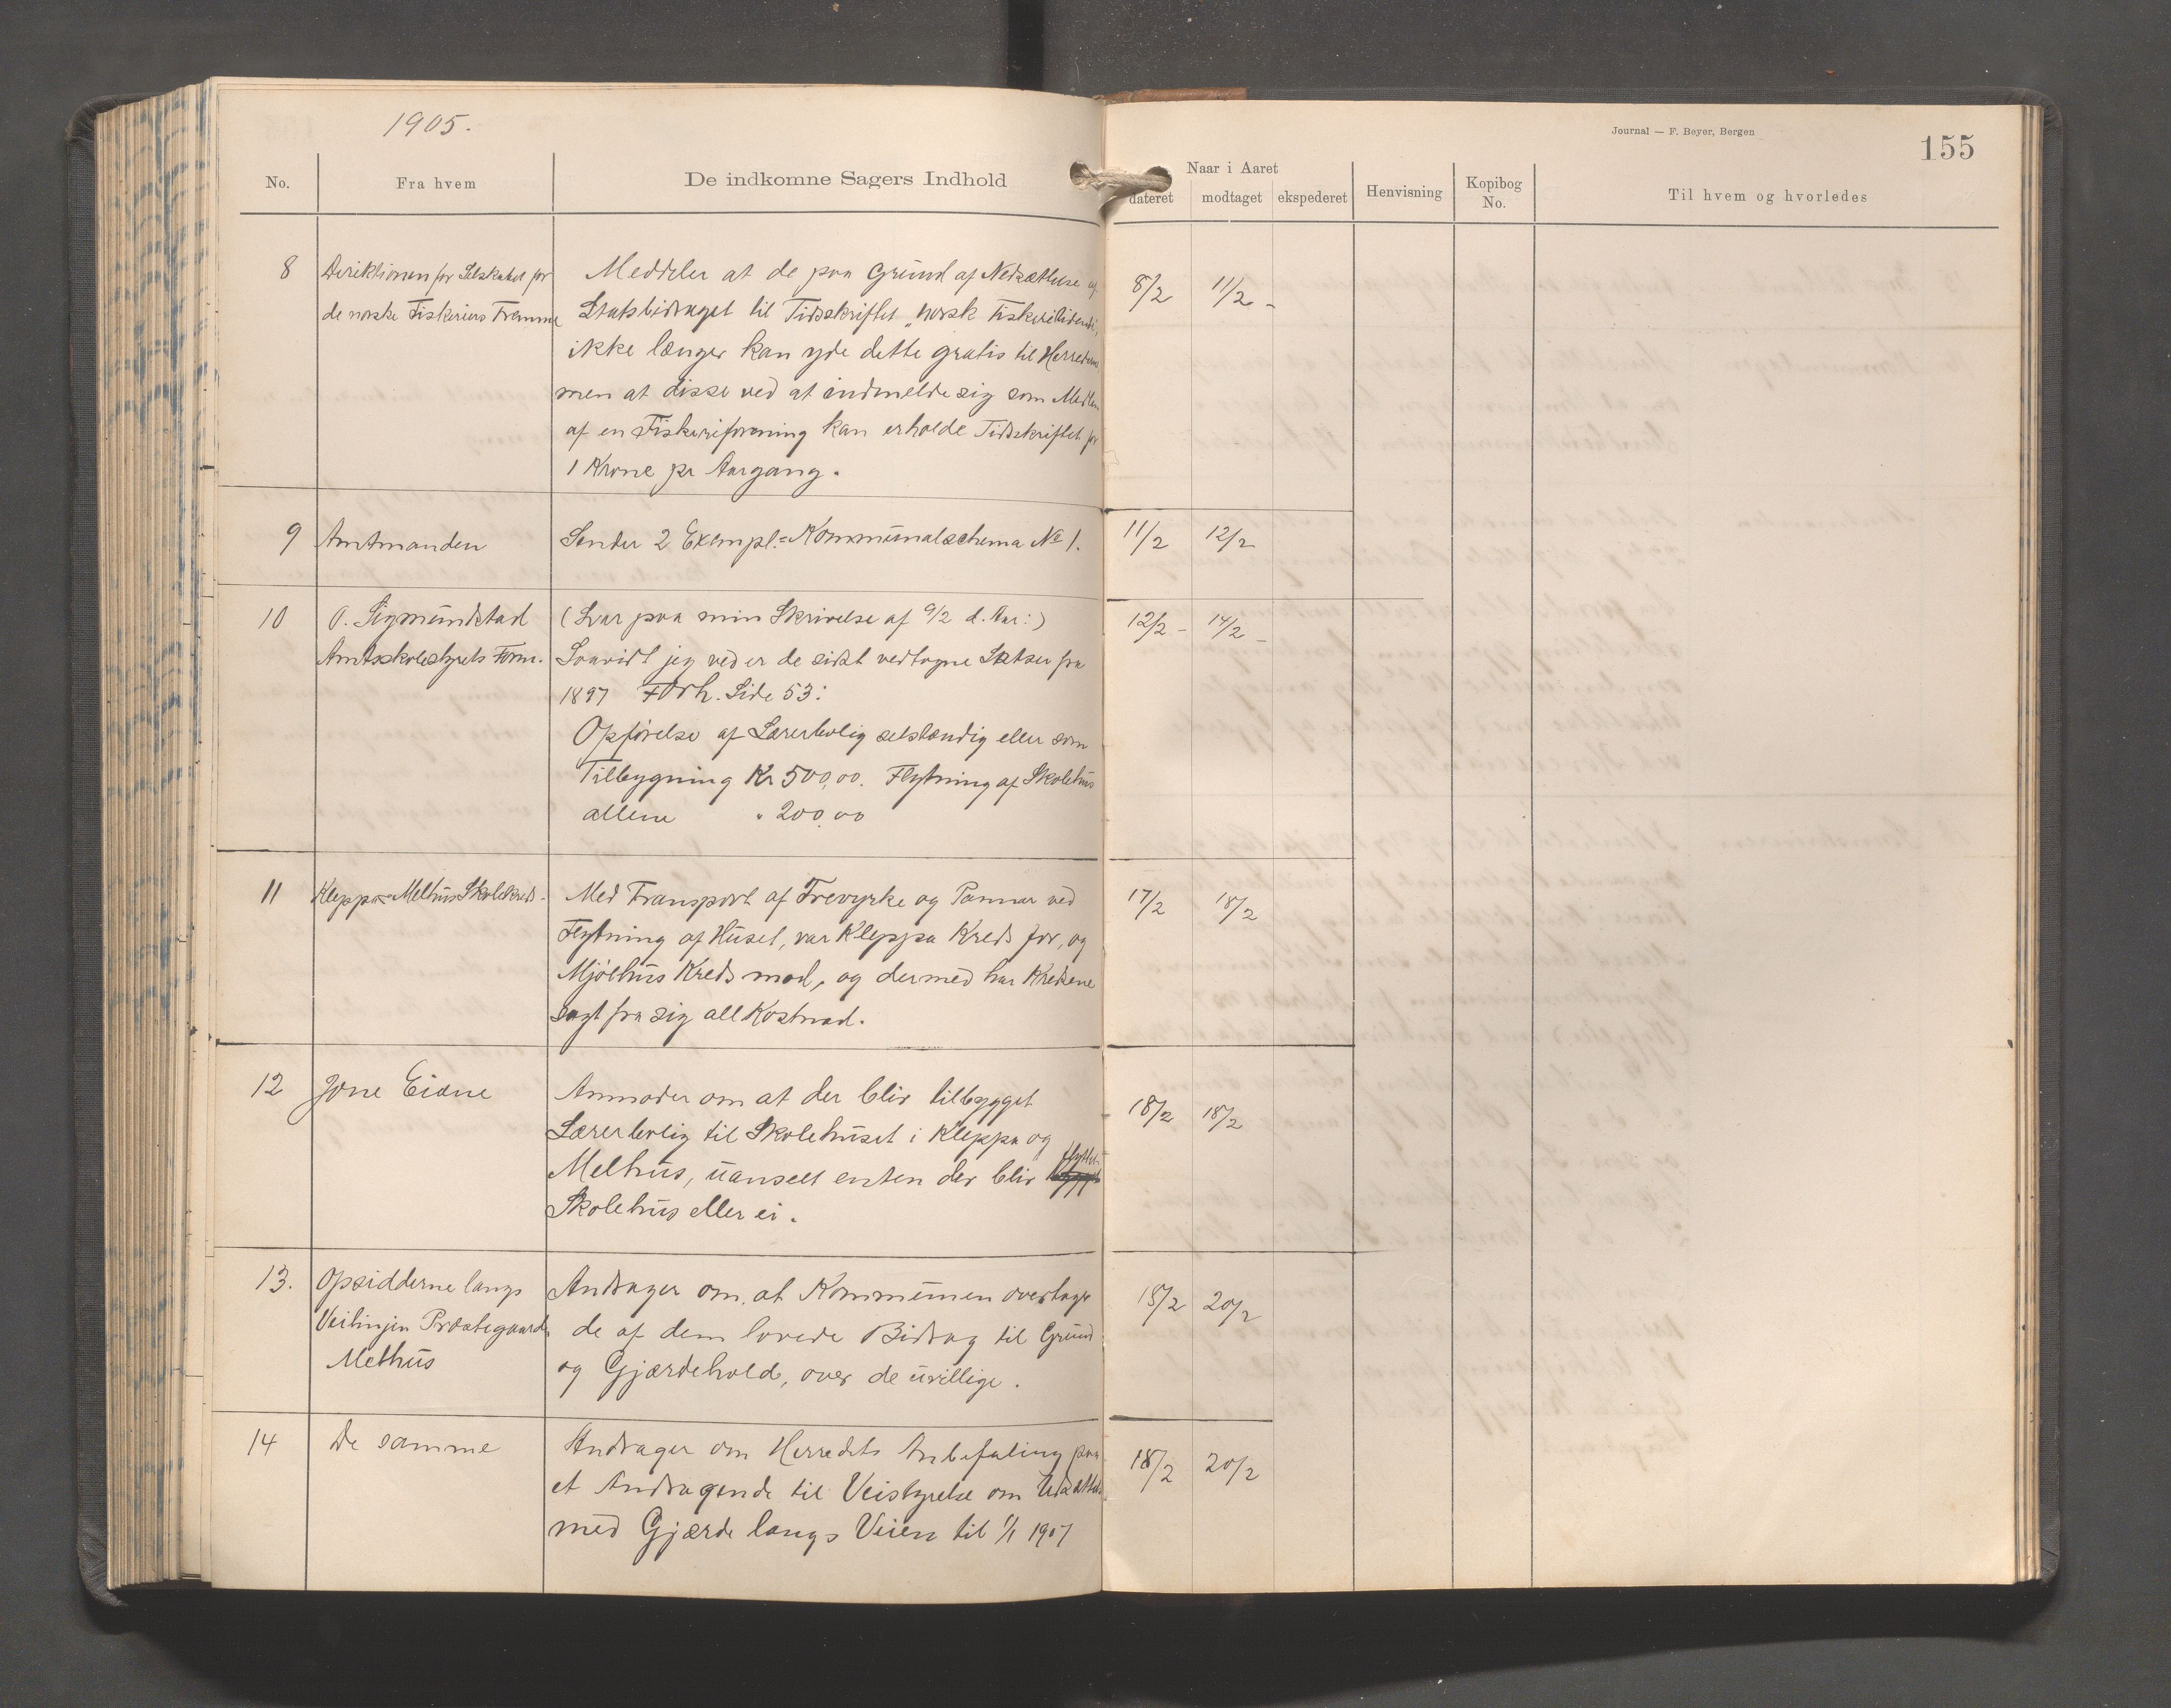 1905.
Journal — F. Beyer, Bergen
155
No.
Fra hvem
De indkomne Sagers Indhold
Naar i Aaret
dateret
modtaget
ekspederet
Henvisning
Kopibog
No.
Til hvem og hvorledes
8 Direktionen for Selskabet for Meddeler at de paa Grund af Nedsættelse af 8/2 11/2 -
de norske Fiskeriers Fremme Statsbidraget til Tidsskriftet „norsk Fiskeritidende",
ikke længer kan yde dette gratis til Herrederne
men at disse ved at indmelde sig som Medlem
af en Fiskeriforening kan erholde Tidsskriftet for
1 Krone pr Aargang.
9 Amtmanden Sender 2 Exempl. Kommunalschema No 1. 11/2 12/2
10 O. Sigmundstad (Svar paa min Skrivelse af 9/2 d. Aar:) 12/2 - 14/2 -
Amtsskolestyrets Form. Saavidt jeg ved er de sidst vedtagne Satser fra
1897 Forh. Side 53:
Opførelse af Lærerbolig selstændig eller som
Tilbygning Kr 500,00. Flytning af Skolehus
allene " 200,00
11 Kleppa-Melhus Skolekreds. Med Transport af Trevyrke og Pannar ved 17/2 18/2
Flytning af Huset, var Kleppa Kreds for, og
Mjølhus Kreds mod, og dermed har Kredsene
sagt fra sig all Kostnad.
12 Jone Eidne Anmoder om at der blir tilbygget 18/2 18/2
Lærerbolig til Skolehuset i Kleppa og
Melhus, uanseet enten der blir flyttet
Skolehus eller ei.
13. Opsidderne langs Andrager om at Kommunen overtager 18/2 20/2
Veilinjen Præstegaard de af dem lovede Bidrag til Grund
Melhus og Gjærdehold, over de uvillige.
14 De samme Andrager om Herredets Anbefaling paa 18/2 20/2
et Andragende til Veistyrelse om Udsættelse
med Gjærde langs Veien til 1/1 1907